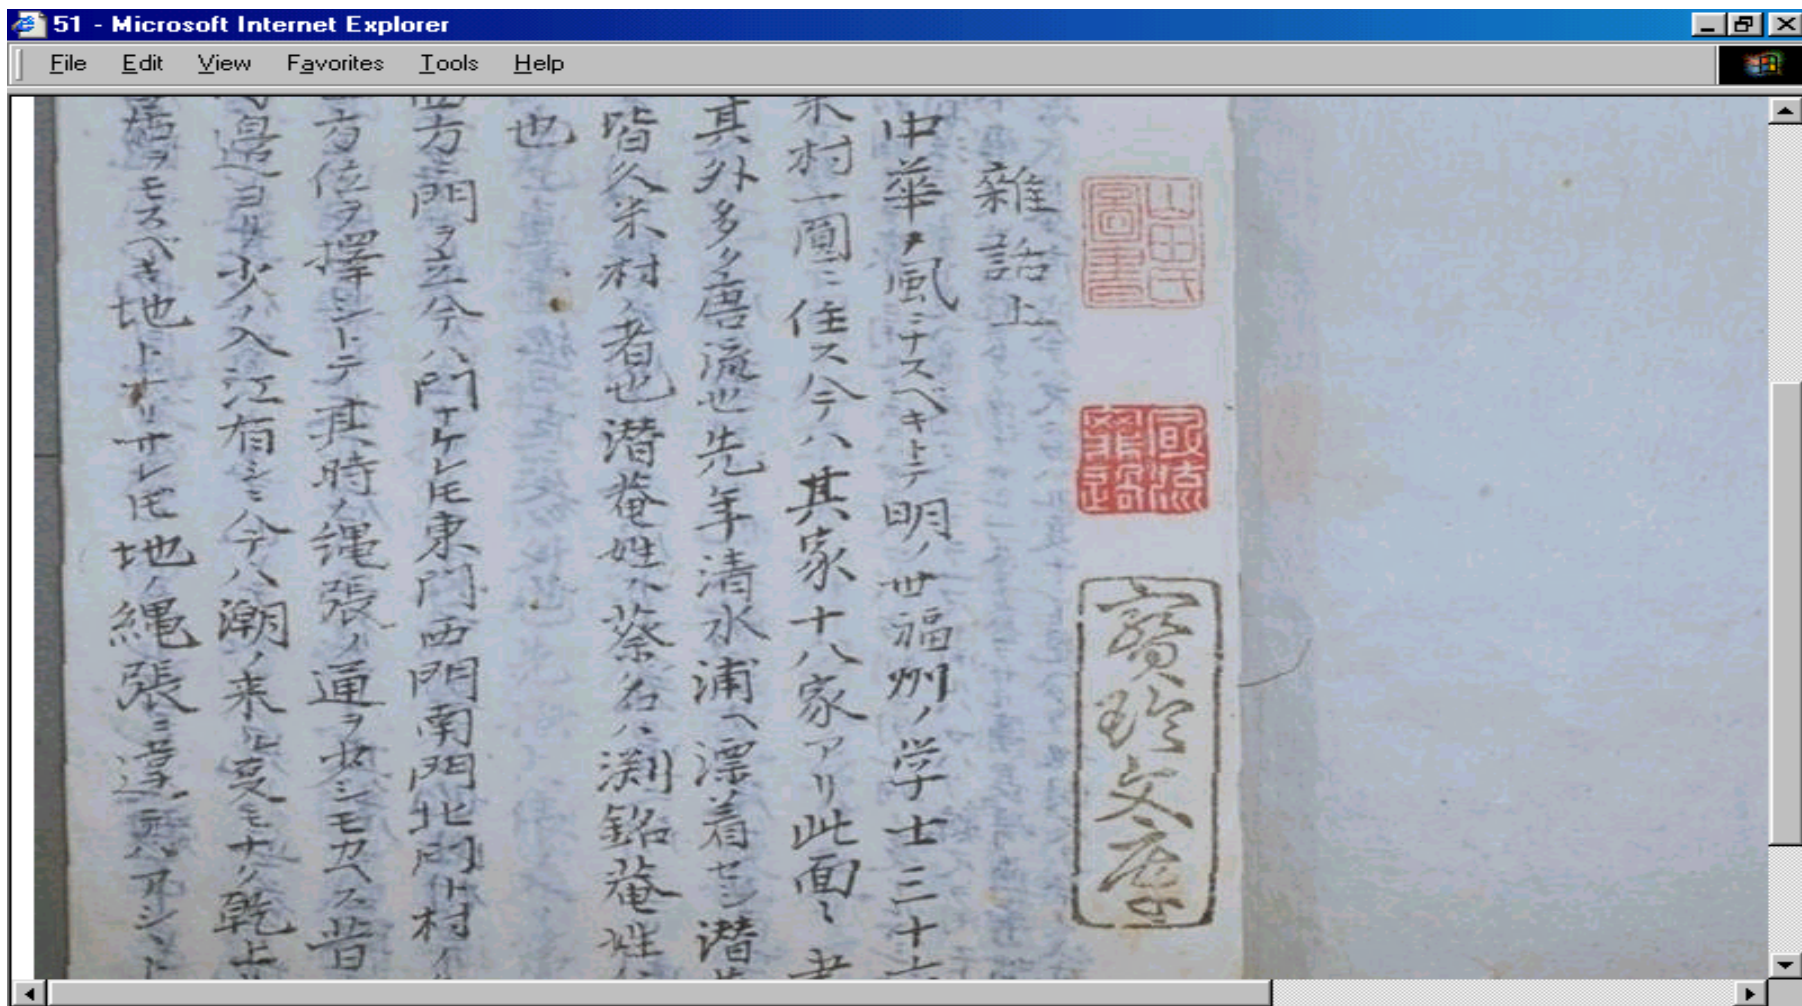 51 - Microsoft Internet Explorer
File Edit View Favorites Tools Help
山田氏圖書
寶玲文庫
雜話上
中華ノ風ニナスベキトテ明ノ世福州ノ学士三十六
米村一圓ニ住ス今ハ其家十八家アリ此面々
其外多クハ唐流也先年清水浦ヘ漂着セシ潜
皆久米村ノ者也潜菴姓ハ蔡名ハ渕銘菴姓
也
方ニ門ヲ立今ハ門ナケレ𪜈東門西門南門北門ト村
方位ヲ擇シトテ其時ノ縄張ノ通ヲ少シモカヘス昔
邉ヨリ少ノ入江有シニ今ハ潮ノ来ル叓モナク乾上
ヲモスベキ地トナリサレ𪜈地ノ縄張ニ違テハアシヽト